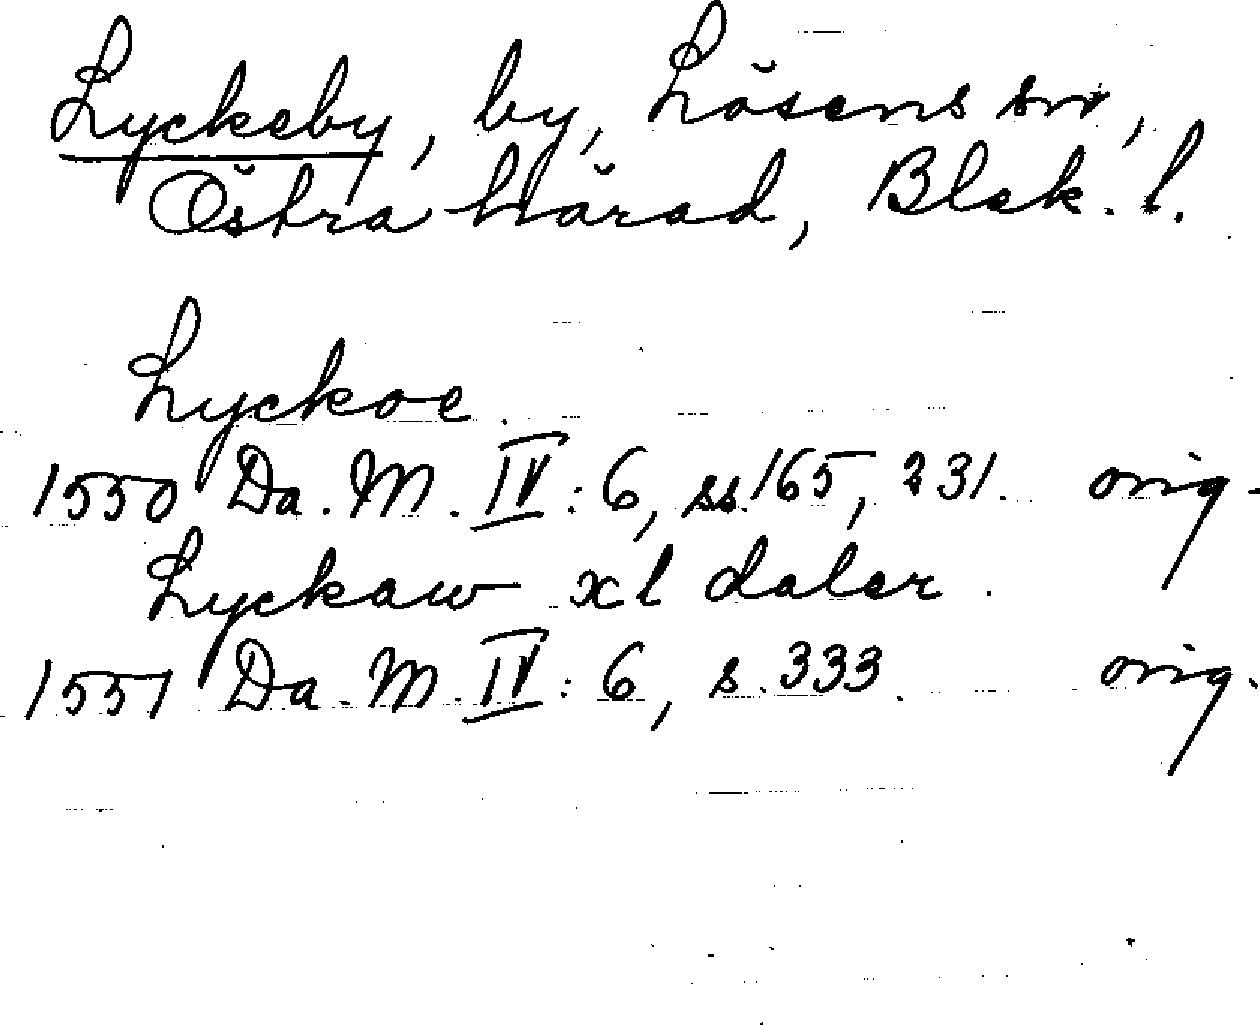 Lyckeby, by, Lösens sn,
Östra härad, Blek. l.
Lyckoe.
1550 Da. M. IV: 6, ss. 165, 231. orig.
Lyckaw xl daler.
1551 Da. M. IV: 6, s. 333. orig.